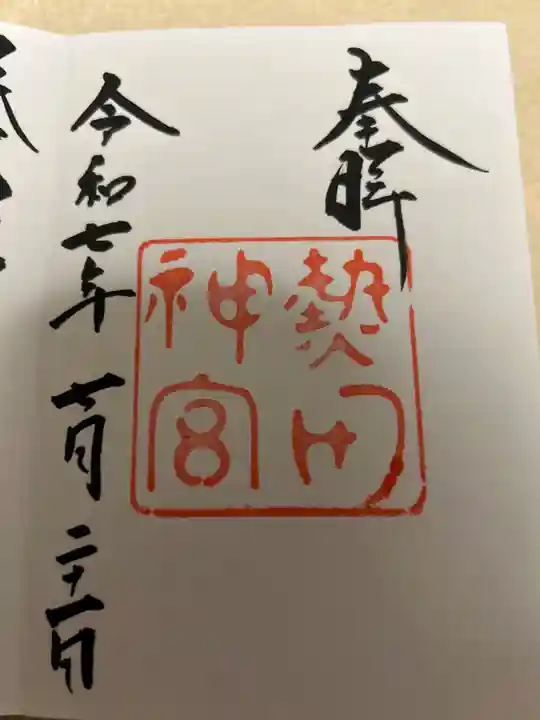 奉拝
熱田
神宮
令和七年 七月 二十一日